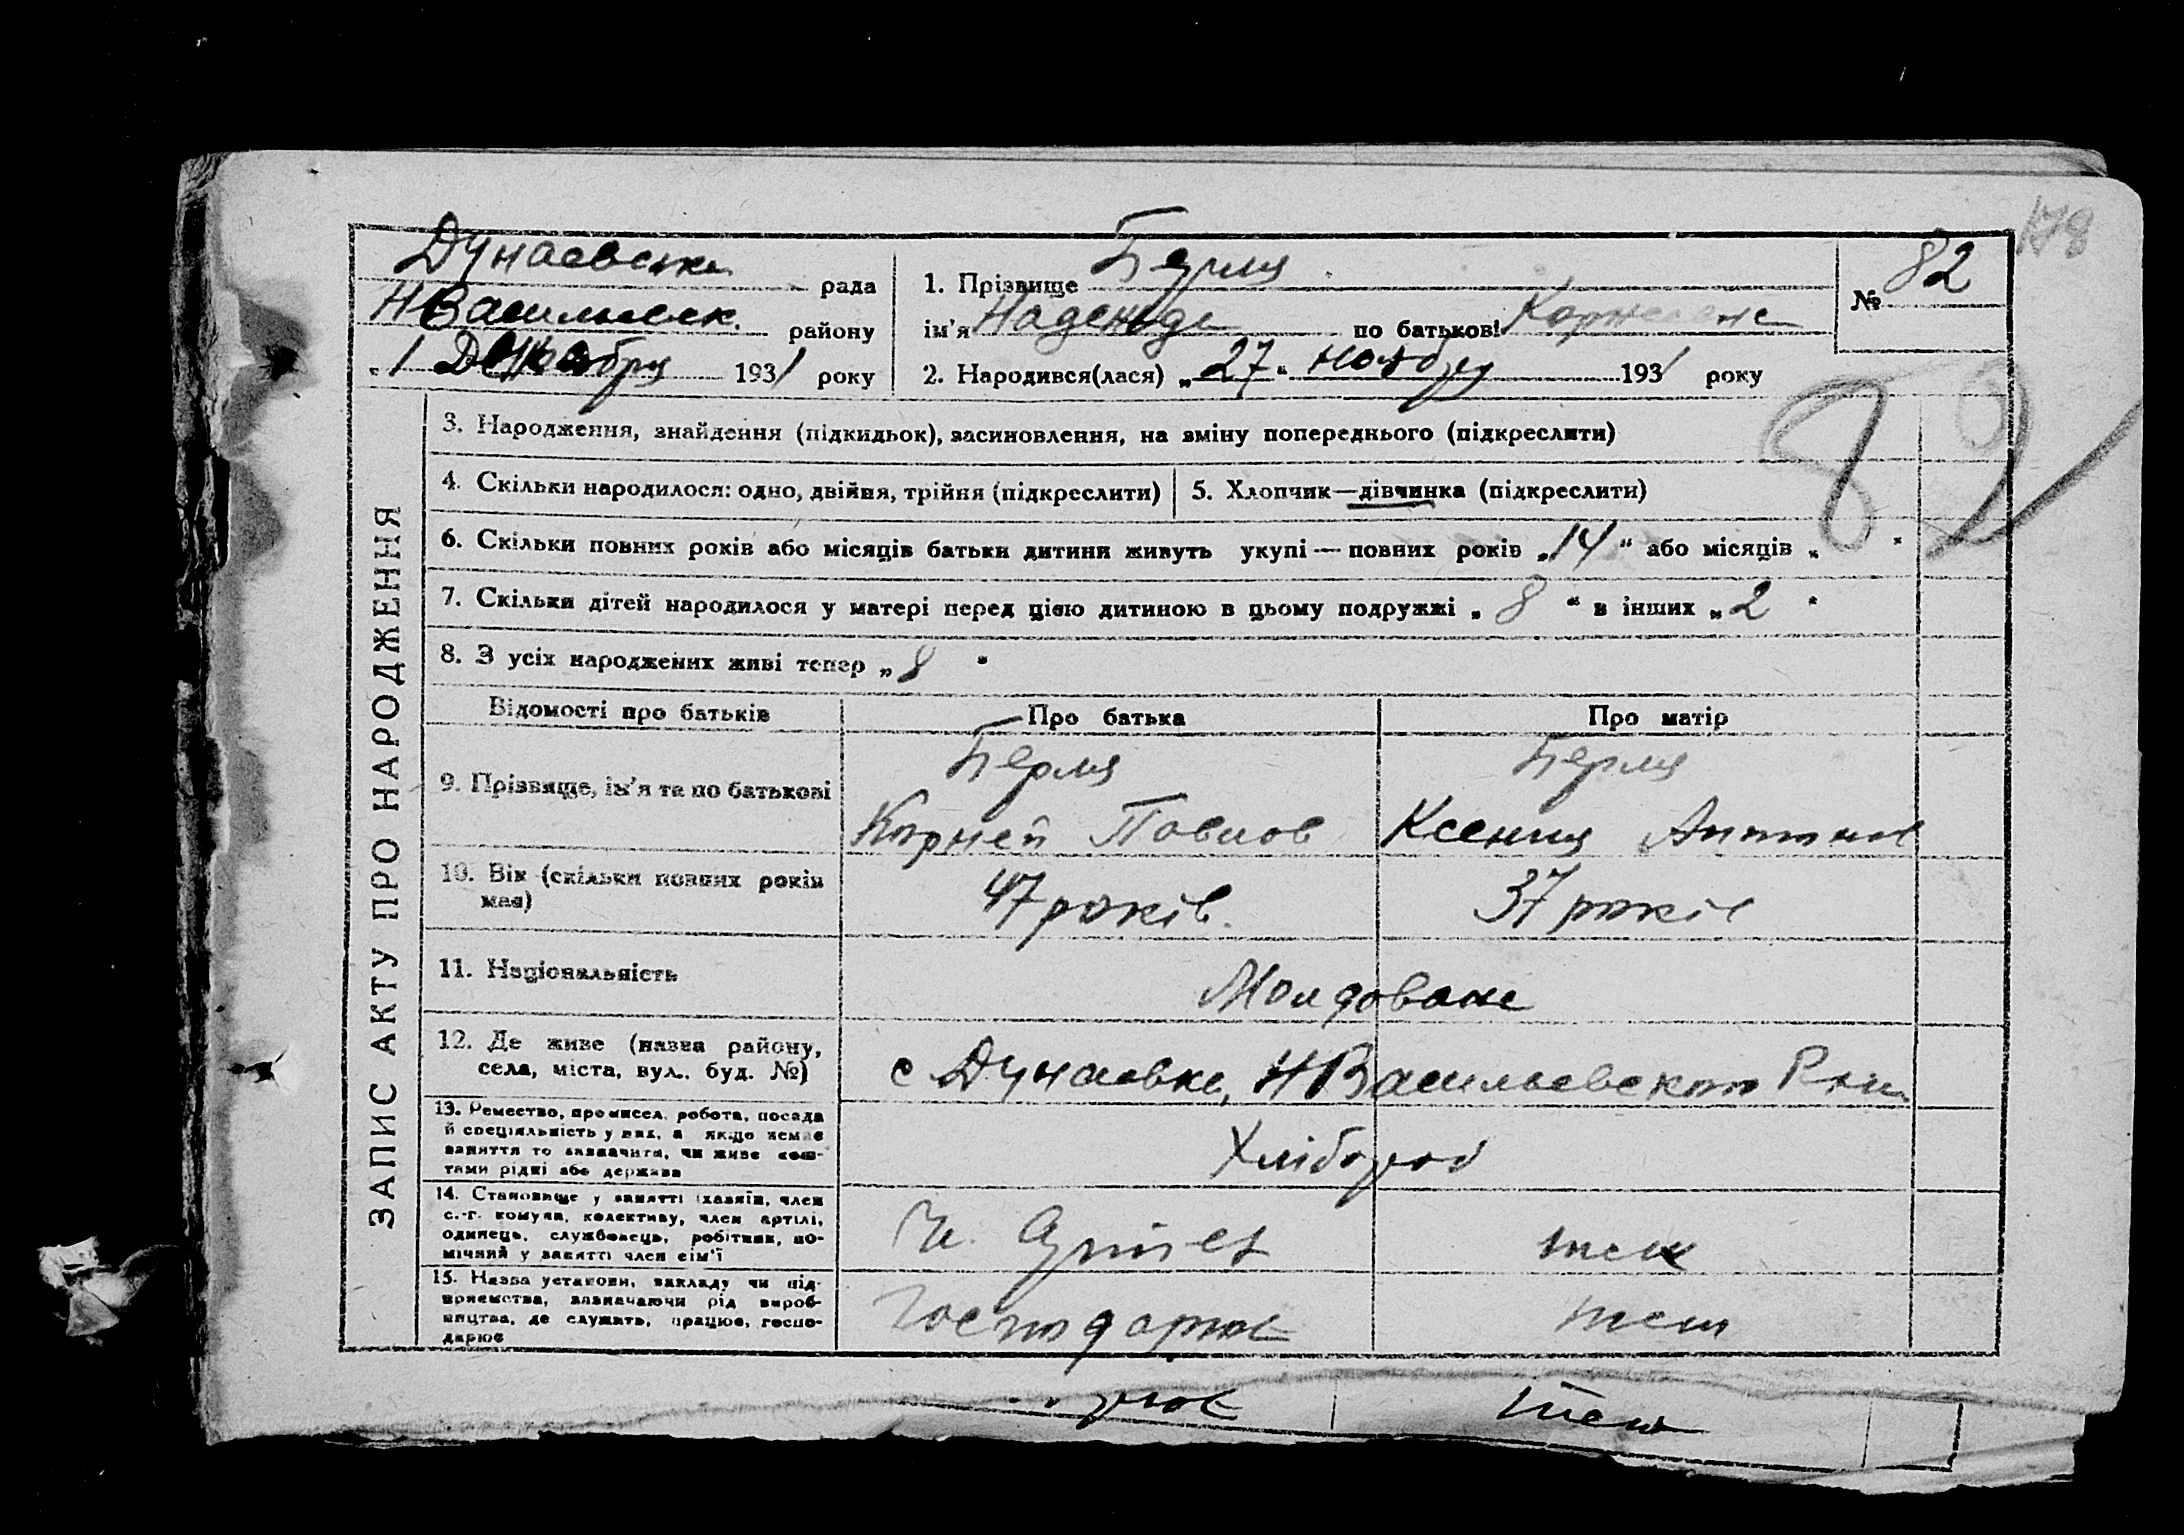 178
Дунаевська рада
НВасильевск. району
1 Декабря 1931 року
1. Прізвище Берля
ім'я Надежда по батькові
2. Народився(лася) „27“ ноября 1931 року
№ 82
82
ЗАПИС АКТУ ПРО НАРОДЖЕННЯ
3. Народження, знайдення (підкидьок), засиновлення, на зміну попереднього (підкреслити)
4. Скільки народилося: одно, двійня, трійня (підкреслити)
5. Хлопчик—дівчинка (підкреслити)
6. Скільки повних років або місяців батьки дитини живуть укупі — повних років „14“ або місяців „ “
7. Скільки дітей народилося у матері перед цією дитиною в цьому подружжі „8“ в інших „2“
8. З усіх народжених живі тепер „8“
Відомості про батьків
Про батька
Про матір
9. Прізвище, ім'я та по батькові
Берля
Корней Павлов
Берля
Ксения Антонов
10. Вік (скільки повних років має)
47 років.
37 років
11. Національність
Молдоване
12. Де живе (назва району,
села, міста, вул., буд. №)
с Дунаевка, НВасильевского Р-на
13. Ремество, промисел, робота, посада
й спеціяльність у них, а якщо немає
заняття то зазначити, чи живе кош-
тами рідні або держави
Хлібороб
14. Становище у занятті (хазяїн, член
с.-г. комуни, колективу, член артілі,
одинець, службовець, робітник, по-
мічний у занятті член сім'ї
Чл. Артілі
теж
15. Назва установи, закладу чи під-
приємства, зазначаючи рід вироб-
ництва, де служить, працює, госпо-
дарює
Господарює
теж
рює
теж